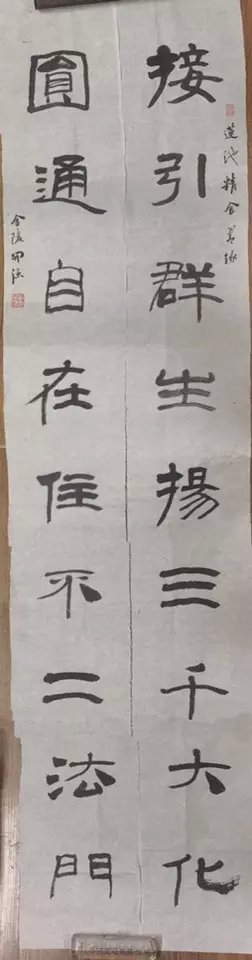 接引群生揚三千大化
圓通自在住不二法門
蓮池精舍
金陵